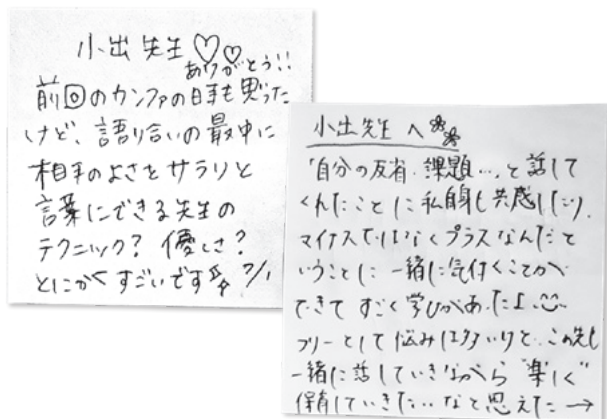 小出先生♡♡
ありがとう!!
前回のカンファの日時も思った
けど、語り合いの最中に
相手のよさをサラリと
言葉にできる先生の
テクニック? 優しさ?
とにかくすごいです 7/1
小出先生へ
「自分の反省・課題…」と話して
くれたことに私自身も共感したり、
マイナスではなくプラスなんだと
いうことに一緒に気付くことが
できてすごく学びがあったよ
フリーとして悩みは多いけど、この先も
一緒に話していきながら“楽しく”
保育していきたい…なと思えた→